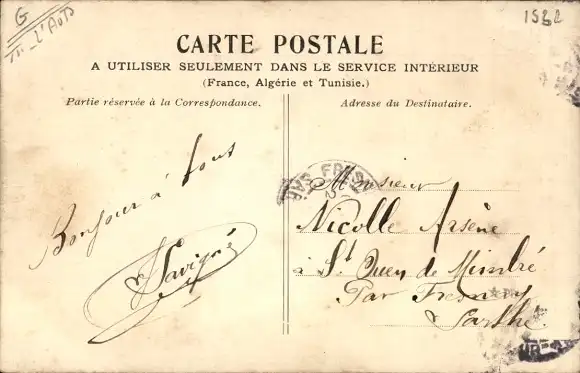 G
1582
CARTE POSTALE
A UTILISER SEULEMENT DANS LE SERVICE INTÉRIEUR
(France, Algérie et Tunisie.)
Partie réservée à la Correspondance.
Adresse du Destinataire.
Bonjour à tous
Savigné
Monsieur
Nicolle Arsène
à St Ouen de Mimbré
Par Fresnay
s Sarthe